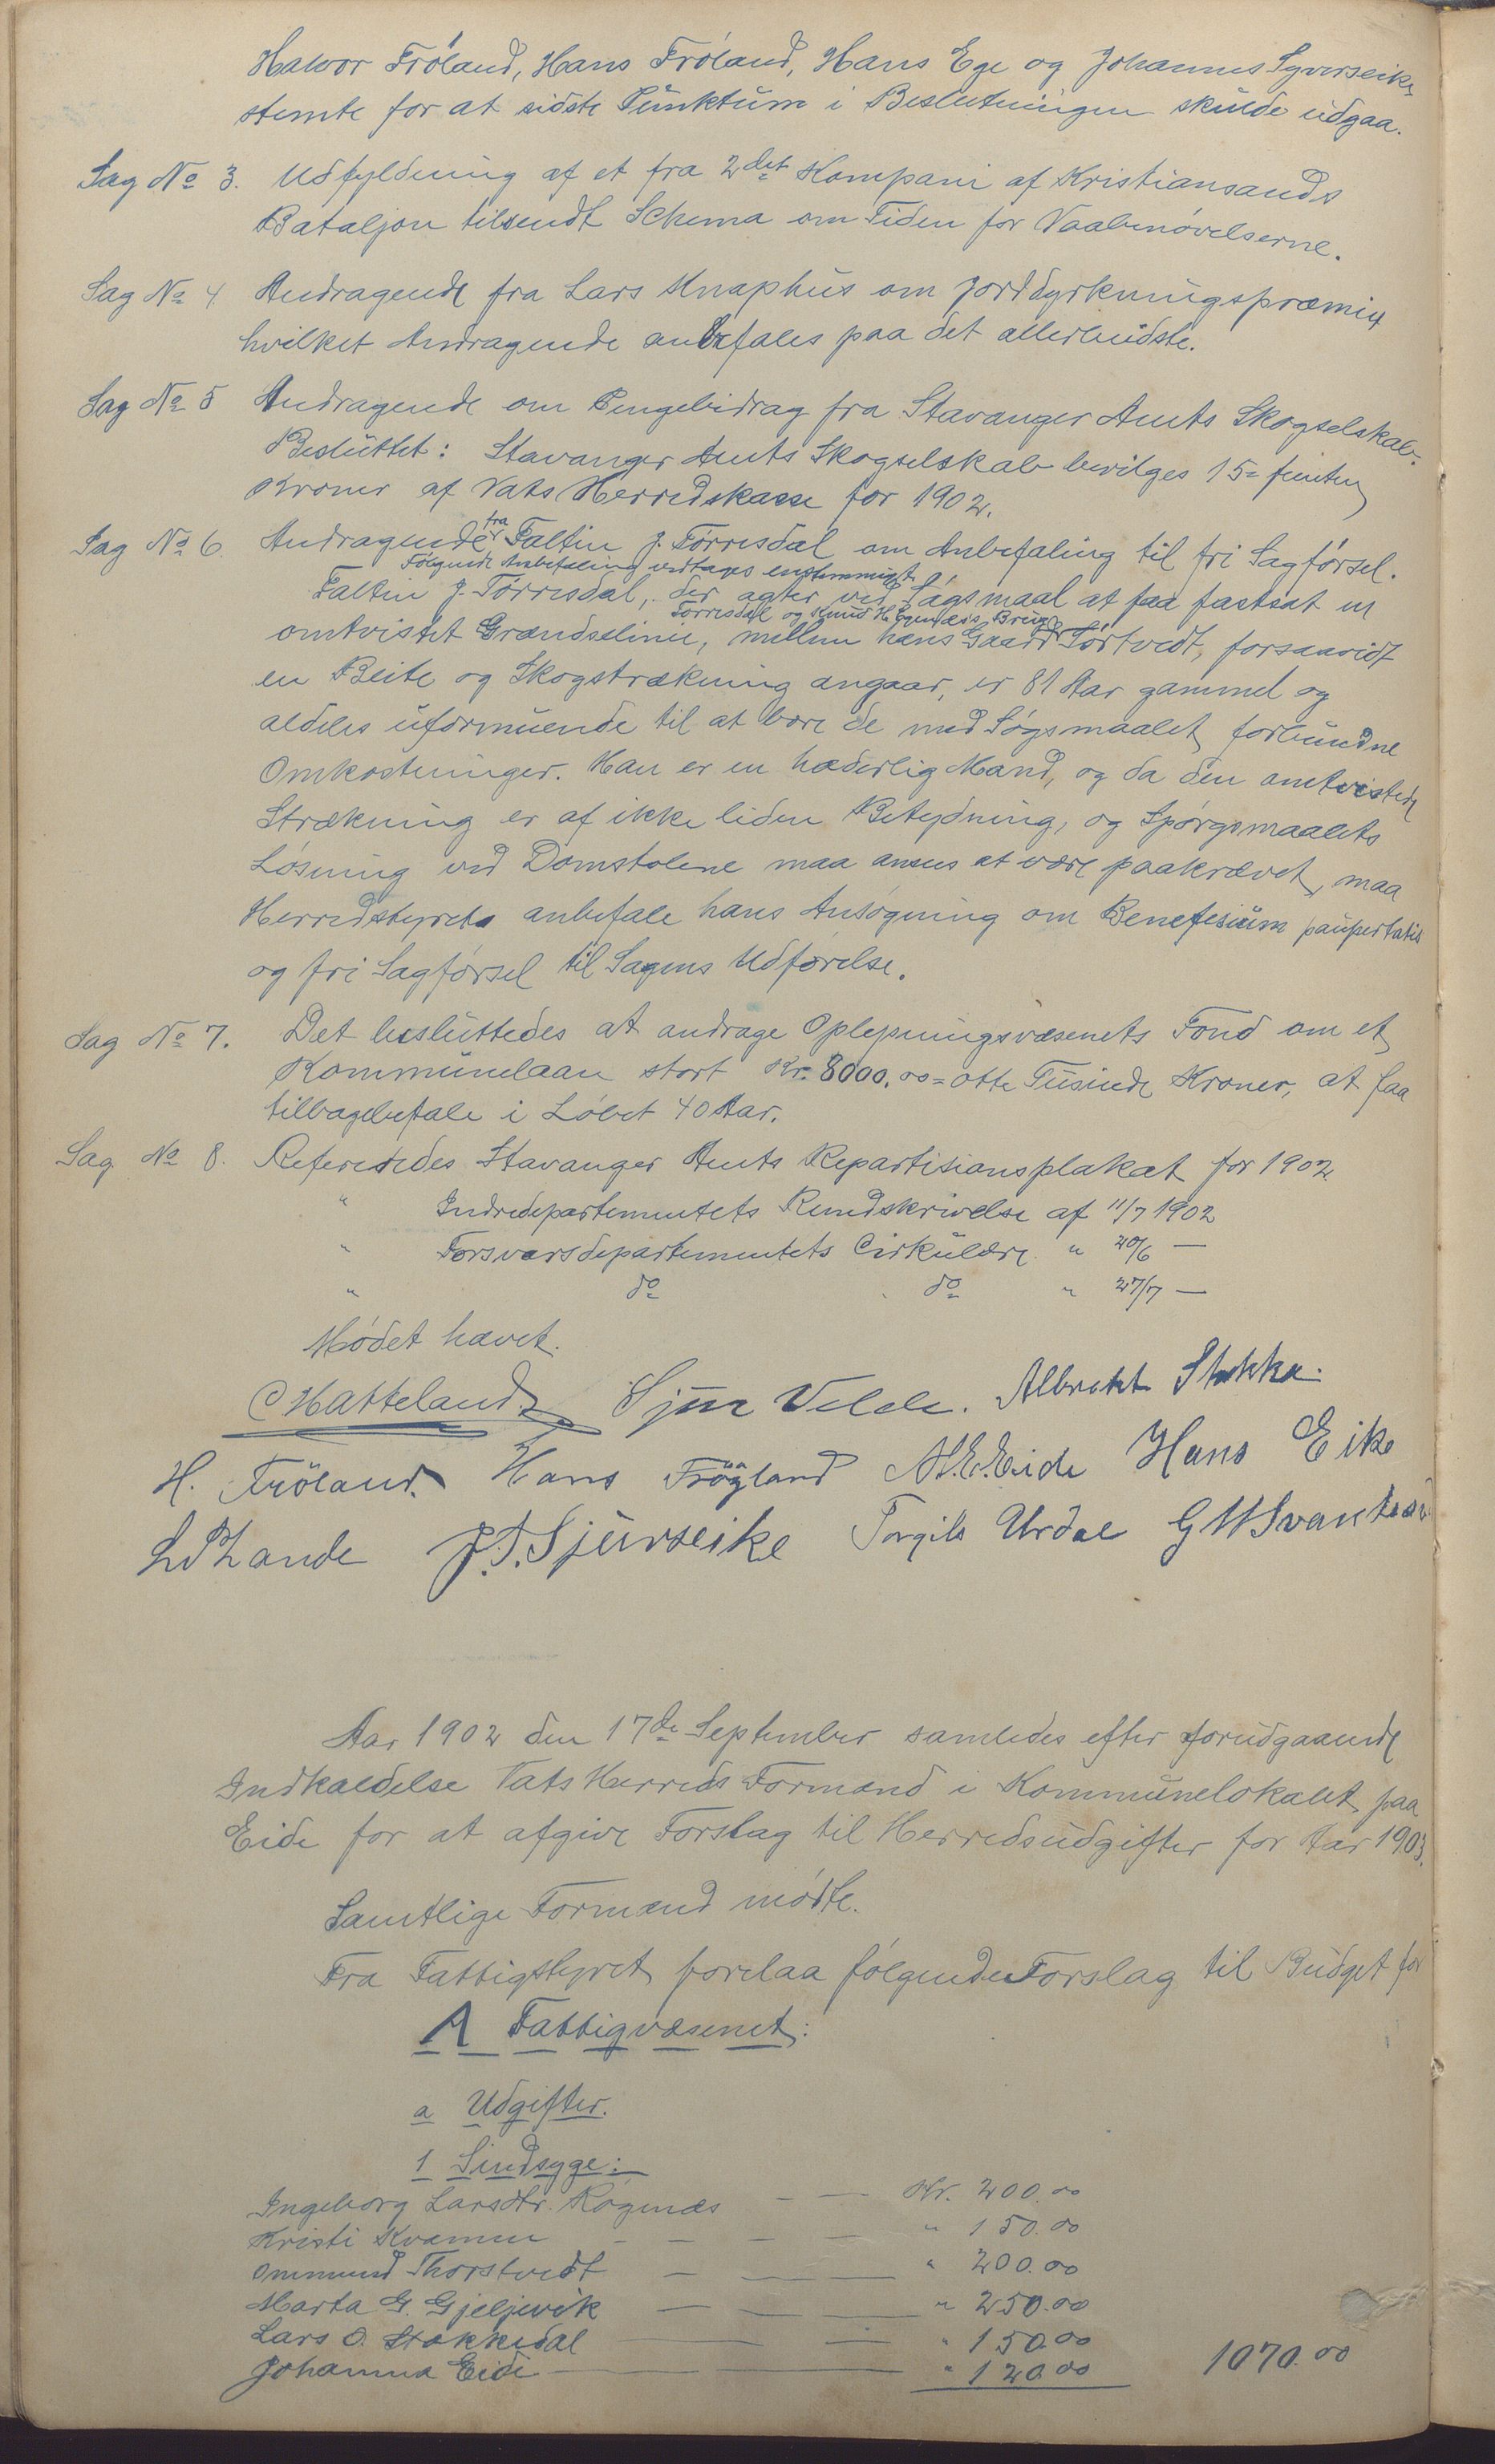 Halvor Fröland, Hans Fröland, Hans Ege og Johannes Syverseike
stemte for at sidste Punktum i Beslutningen skulde udgaa.
Sag No 3. Udfyldning af et fra 2det Kompani af Kristiansands
Bataljon tilsendt Schema om Tiden for Vaabenøvelserne.
Sag No 4. Andragende fra Lars Knaphus om Jorddyrkningspræmie
hvilket Andragende anbefales paa det allerbedste.
Sag No 5 Andragende om Pengebidrag fra Stavanger Amts Skogselskab.
Besluttet: Stavanger Amts Skogselskab bevilges 15= femten
Kroner af Vats Herredskasse for 1902.
Sag No 6. Andragende fra Faltin J. Törresdal om Anbefaling til fri Sagførsel.
Følgende Anbefaling vedtages enstemmigt
Faltin J. Törresdal, der agter ved Søgsmaal at faa fastsat en
Törresdal og Knud H. Egenæs's Brug
omtvistet Grændselinie, mellem hans Gaard Törtvedt, forsaavidt
en Beite og Skogstrækning angaar, er 81 Aar gammel og
aldeles uformuende til at bære de med Søgsmaalet forbundne
Omkostninger. Han er en hæderlig Mand, og da den omtvistede
Strækning er af ikke liden Betydning, og Spørgsmaalets
Løsning ved Domstolene maa ansees at være paakrævet, maa
Herredstyret anbefale hans Ansøgning om Benefesium paupertatis
og fri Sagførsel til Sagens Udførelse.
Sag No 7. Det besluttedes at andrage Oplysningsvæsenets Fond om et
Kommunelaan stort Kr. 8000.00 = otte Tusinde Kroner, at faa
tilbagebetale i Løbet 40 Aar.
Sag No 8. Refereredes Stavanger Amts Repartisionsplakat for 1902.
" Indredepartementets Rundskrivelse af 11/7 1902
" Forsvarsdepartementets Cirkulære " 20/6 —
" do do " 27/7 —
Mødet hævet.
C Hatteland. Sjur Velde. Albrekt Stokka.
H. Fröland. Hans Frögland A.E. Eide Hans Eike
L Lande J. T. Sjurseike Torgils Urdal G W Svantesd
Aar 1902 den 17de September samledes efter forudgaaende
Indkaldelse Vats Herreds Formænd i Kommunelokalet paa
Eide for at afgive Forslag til Herredsudgifter for Aar 1903.
Samtlige Formænd mødte.
Fra Fattigstyret forelaa følgende Forslag til Budget for
A Fattigvæsenet:
a Udgifter.
1 Sindsyge:
Ingeborg Larsdtr. Røgenæs — — Kr. 200.00
Kristi Kvamen — — — " 150.00
Ommund Thorstvedt — — — " 200.00
Marta G. Gjeljevik — — — " 250.00
Lars O. Stokkedal — — " 150.00
Johanna Eide — — — " 120.00 1070.00